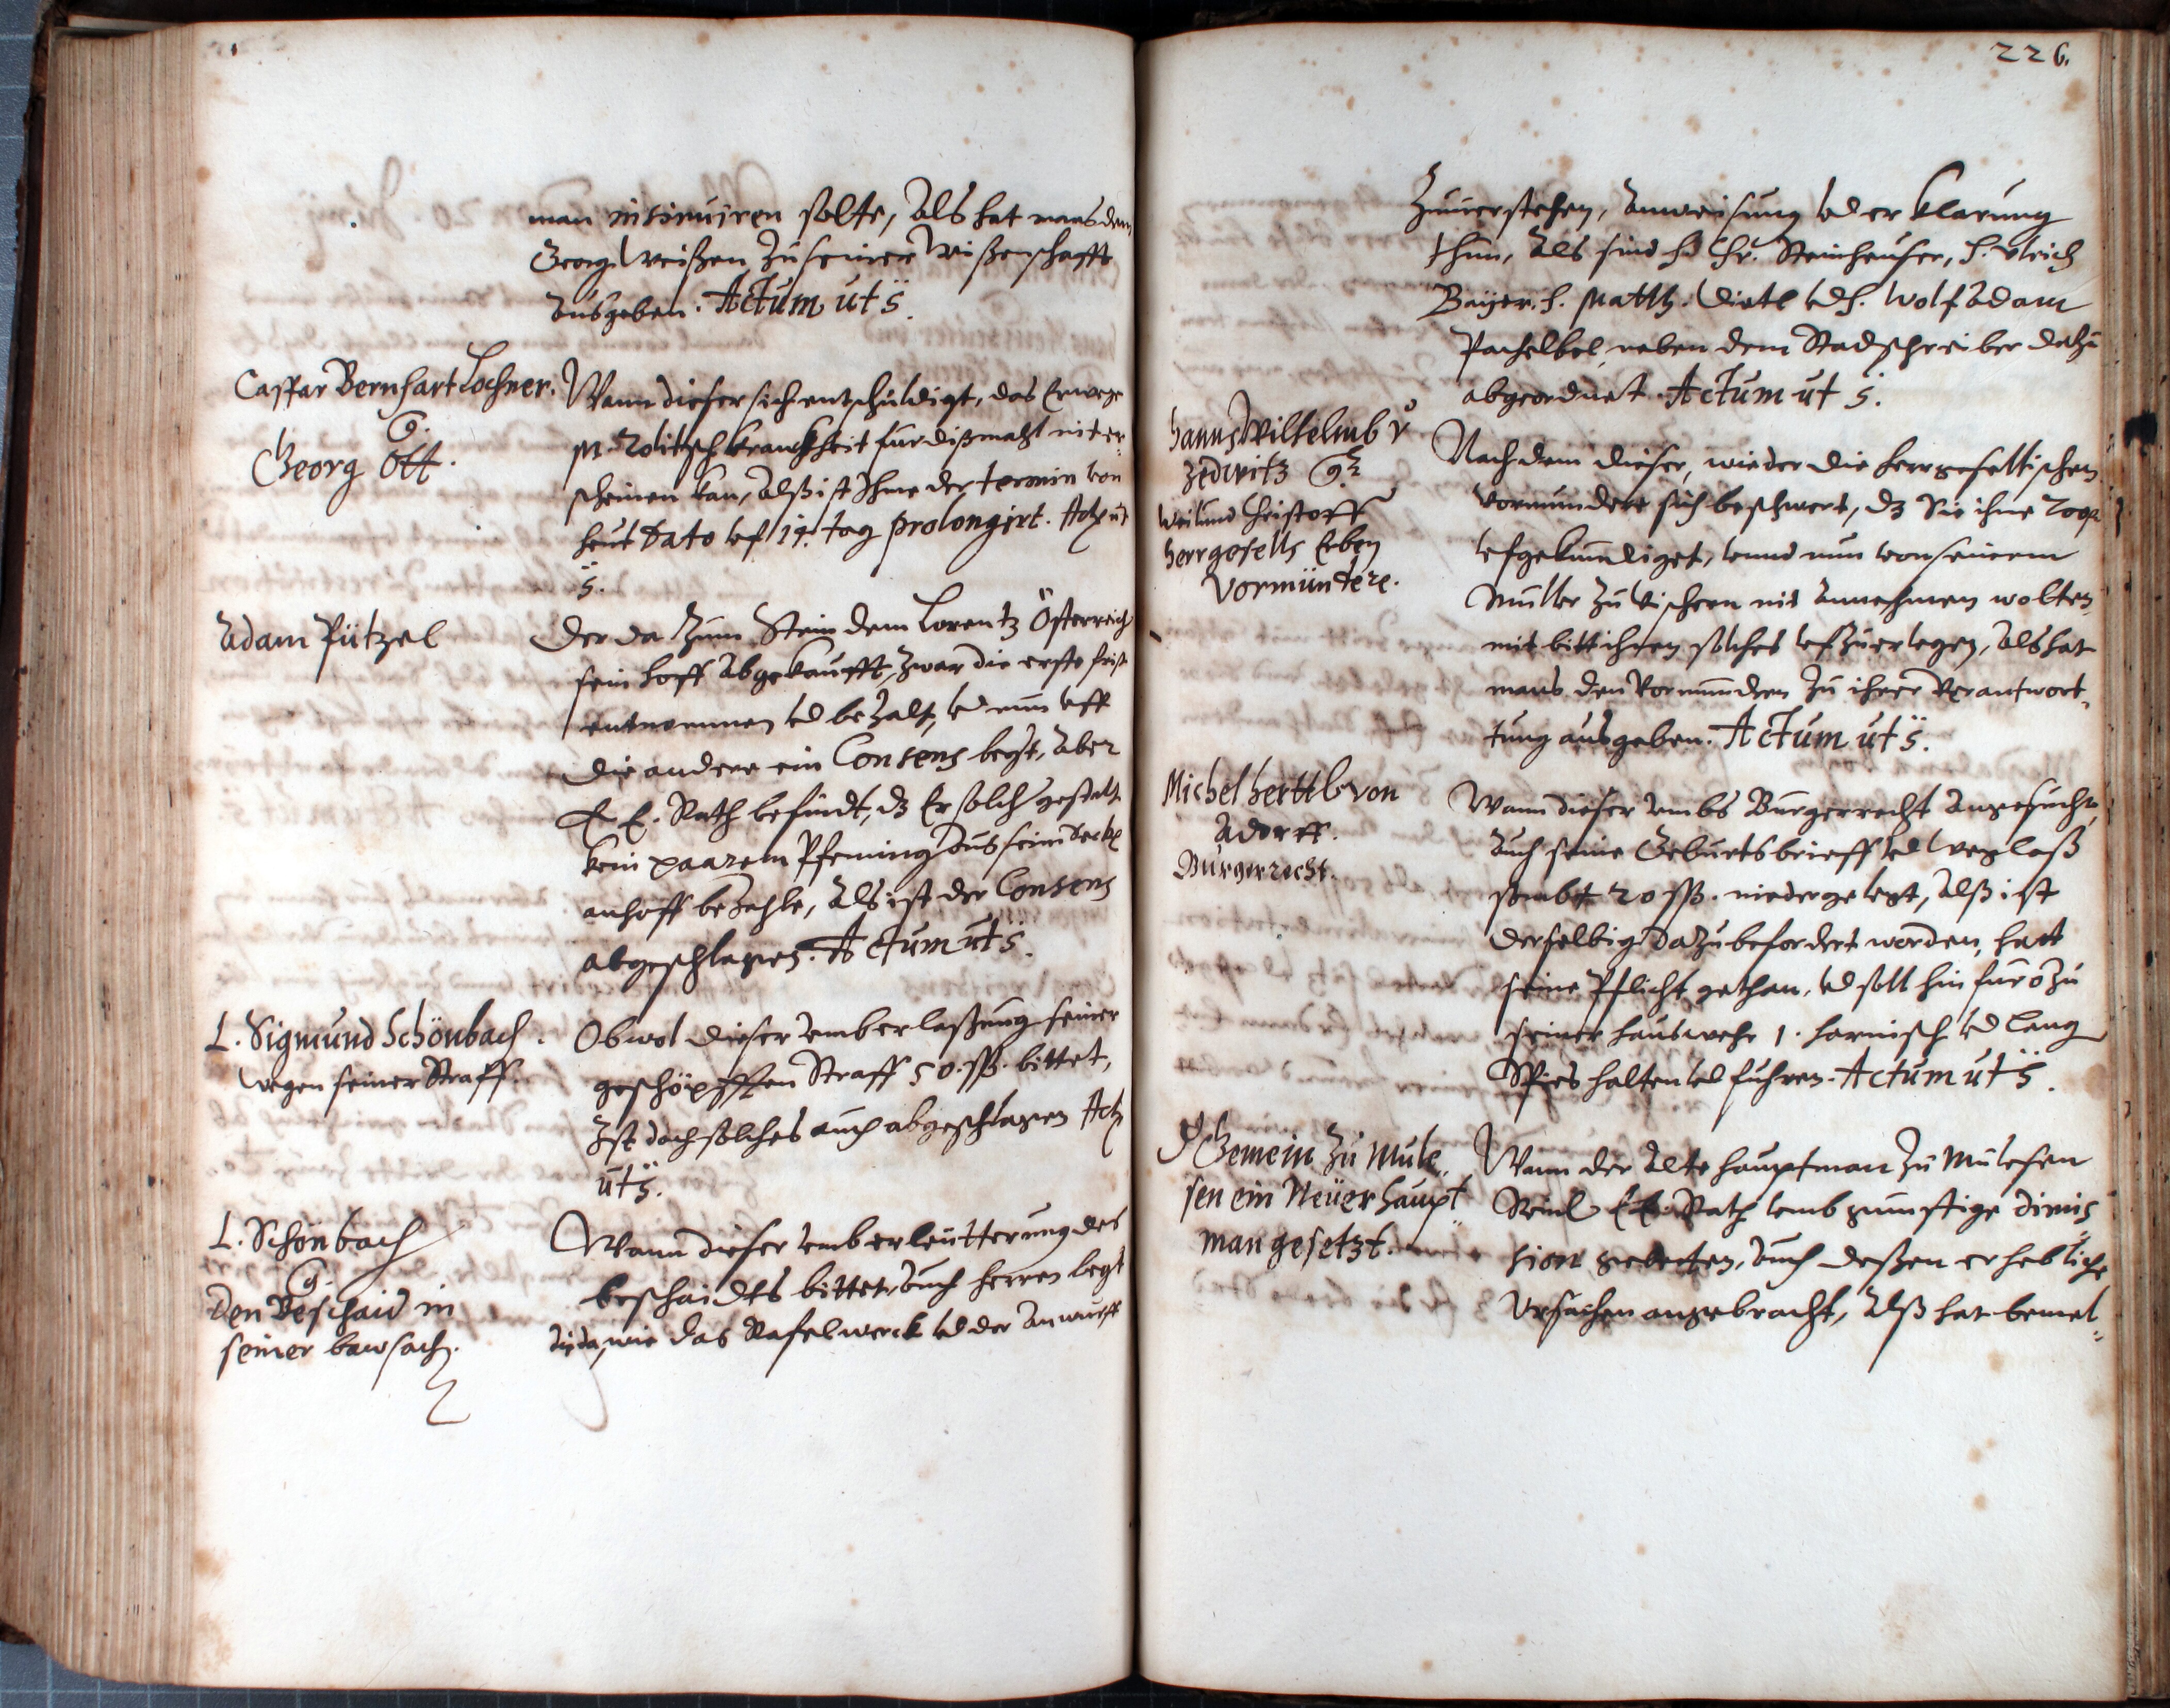 man insinuiren solte, Als hat mans dem
Georg Weißen zu seiner Wißenschafft
Ausgeben. Actum ut s.
Caspar Bernhart Lochner.
G.
Georg Ott.
Wann dieser sich entschuldigt, das
M. kranckheit fur dißmahl nit er-
scheinen kan, Alß ist Ihme der termin von
heut Dato uf 14. tag prolongirt. Act. ut
s.
Adam Pützel
Der da Zum Stein dem Lorentz Österreich
sein hoff abgekaufft, zwar die erste frist
entnommen vnd bezalt, vnd nun vff
die andere ein Consens begert, Aber
E. E. Rath befindt, dz Er solch gestalt
kein paaren Pfenning aus sein
anhoff bezahle, Als ist der Consens
abgeschlagen. Actum ut s.
L. Sigmund Schönbach.
wegen seiner Straff.
Obwol dieser vmb erlaßung seiner
geschöpfften Straff 50. ßß. bittet,
Ist doch solches auch abgeschlagen Act.
ut s.
L. Schönbach
G.
den Beschaid in
seiner bawsach.
Wann dieser vmb erleutterung des
beschaidts bittet, Auch herren legt
wie das Tafelwerck vnd der Anwurff
226.
Zuuerstehen, Anweisung vnd erklarung
thun, Als sind hr. Chr. Steinhauser, h. Vlrich
Bayer, h. Matth. Dietl vnd h. Wolf Adam
Pachelbel, neben dem Stadschreiber dazu
abgeordnet. Actum ut s.
Hanns Wilhelmb v.
Zedwitz G.
Weilund Christoff
Herrgesells Erben
Vormündere.
Nach dem dieser, wieder die herrgesellischen
Vormundere sich beschwert, dz Sie ihme
vfgekundiget, vnnd nun von seinem
Müller zu Fischern nit annehmen wolten,
mit bitt ihnen solches vfzuerlegen, Als hat
mans den Vormundern zu ihrer Verantwort-
tung ausgeben. Actum ut s.
Michel Herttl von
Adorff.
Burgerrecht.
Wann dieser vmbs Burgerrecht angesucht,
Auch seine Geburtsbrieff vnd Weglaß
sambt 20 ßß. niedergelegt, Alß ist
derselbig dazu befordert worden, hatt
seine Pflicht gethan, vnd soll hinfuro zu
seiner hauswehr 1. harnisch vnd lang
Spies halten vnd fuhren. Actum ut s.
Gemein zu Mule
sen ein Neüer haupt
man gesetzt.
Wann der alte hauptman zu Mulesen
E. E. Rath vmb gunstige dimis
sion gebetten, Auch deßen erhebliche
Vrsachen angebracht, Alß hat bemel-